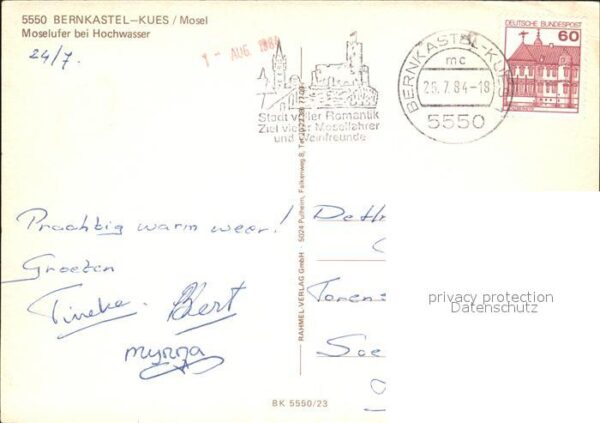 5550 BERNKASTEL-KUES / Mosel
Moselufer bei Hochwasser
24/7.
1 - AUG. 1984
Stadt voller Romantik
Ziel vieler Moselfahrer
und Weinfreunde
BERNKASTEL-KUES
mc
7.84-18
5550
DEUTSCHE BUNDESPOST
60
Prachtig warm weer!
Groeten
Tineke. Bert
myrra
RAHMEL-VERLAG GmbH · 5024 Pulheim, Falkenweg 8, Tel.
Soe
privacy protection
Datenschutz
BK 5550/23